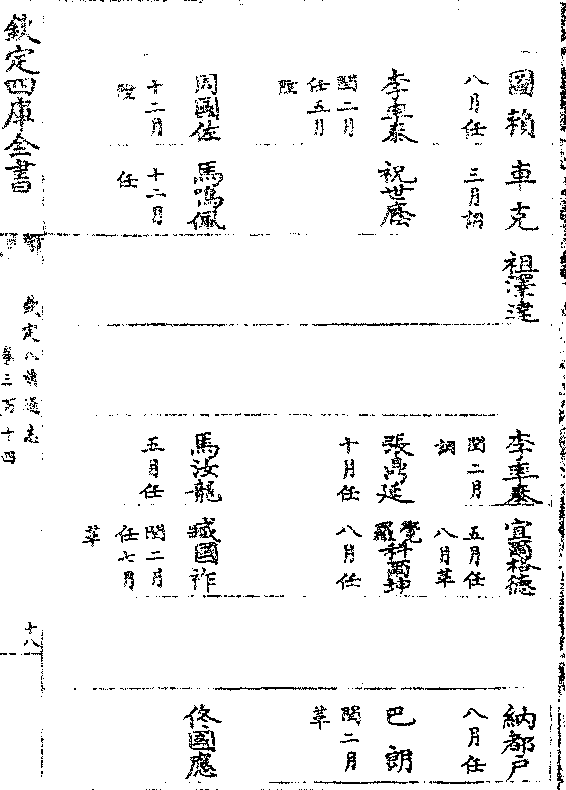 圖賴
八月任
車克
三月調
祖澤遠
李率泰
閏二月
調
宜爾格德
五月任
八月革
納都戶
八月任
李率泰
閏二月
任五月
陞
祝世廕
張鼎延
十月任
覺羅科爾坤
八月任
巴朗
閏二月
革
周國佐
十二月
陞
馬鳴佩
十二月
任
馬汝龍
五月任
臧國祚
閏二月
任七月
革
佟國應
欽定四庫全書
欽定八旗通志
卷三百十四
十八